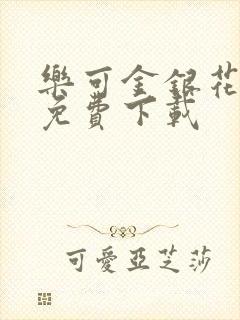 樂可金銀花
免費下載
可愛亞芝莎